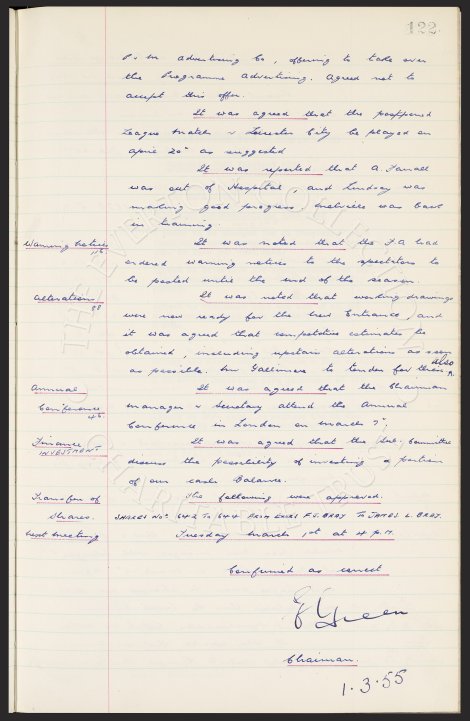 122
P. & M Advertising Co, offering to take over
the Programme advertising. Agreed not to
accept this offer.
It was agreed that the postponed
League match v Leicester City be played on
april 20th as suggested
It was reported that A. Farrall
was out of Hospital, and Lindsay was
making good progress was back
in training.
Warning Notices It was noted that the F.A had
ordered warning notices to the spectators to
be posted until the end of the season.
Alterations It was noted that working drawings
88
were now ready for the new Entrance, and
it was agreed that competitive estimates be
obtained, including upstairs alterations as soon
as possible. Mr Gallimore to tender for them also
Annual It was agreed that the Chairman
Conference manager & Secretary attend the Annual
46
Conference in London on march 7th,
Finance It was agreed that the Sub. Committee
INVESTMENT
discuss the possibility of investing a portion
of our cash Balance.
Transfer of The following were approved.
Shares. SHARES Nos 642 TO 644 FROM EXORS F.G. BRAY TO JAMES L. BRAY.
next meeting Tuesday march 1st at 4 P.M.
Confirmed as correct
E Green
Chairman.
1.3.55
THE EVERTON COLLECTION CHARITABLE TRUST